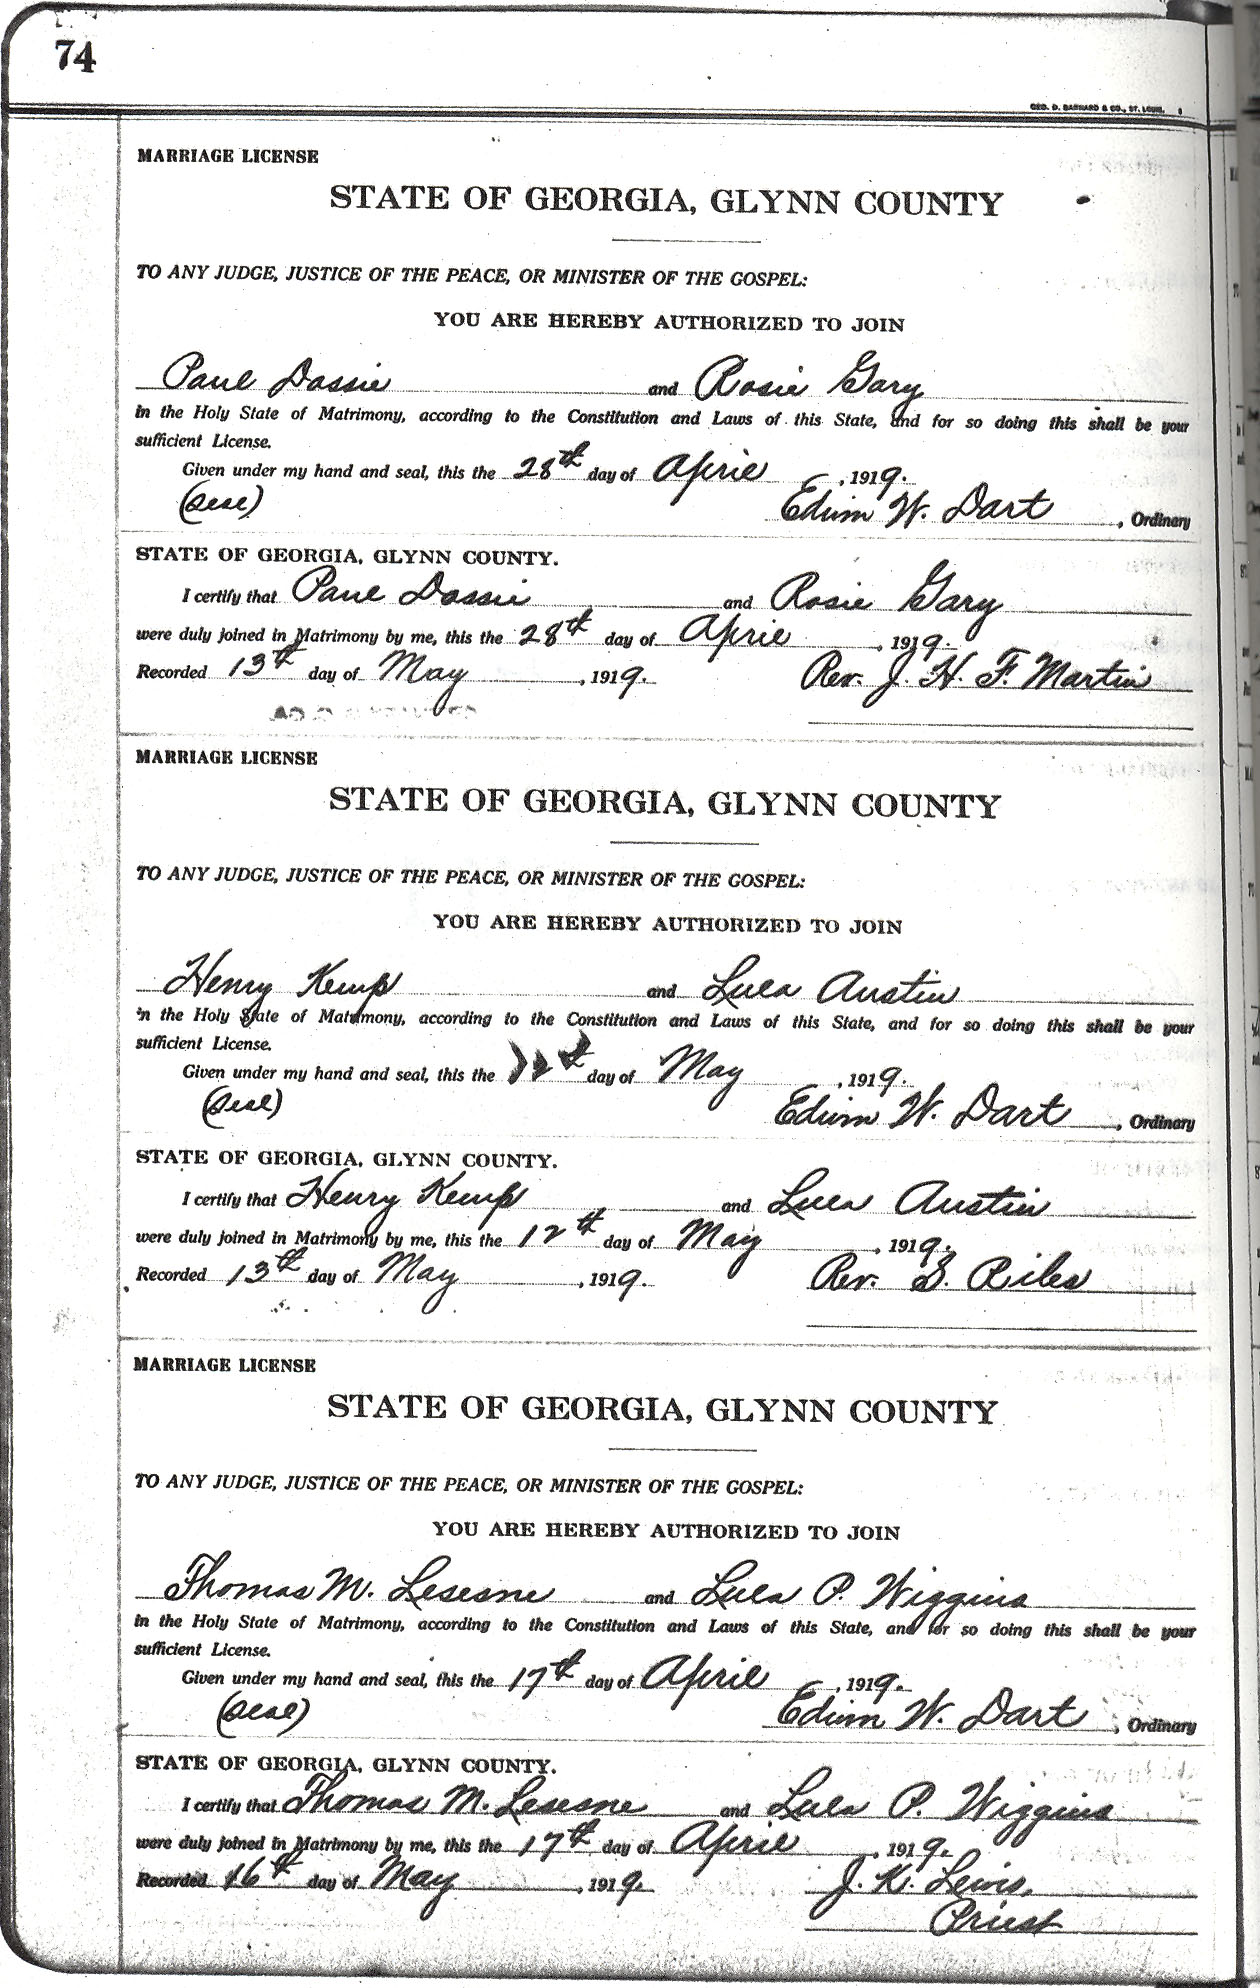 74
GEO. D. BARNARD & CO., ST. LOUIS.
MARRIAGE LICENSE
STATE OF GEORGIA, GLYNN COUNTY
TO ANY JUDGE, JUSTICE OF THE PEACE, OR MINISTER OF THE GOSPEL:
YOU ARE HEREBY AUTHORIZED TO JOIN
Paul Dassie and Rosie Gary
in the Holy State of Matrimony, according to the Constitution and Laws of this State, and for so doing this shall be your
sufficient License.
Given under my hand and seal, this the 28th day of April, 1919.
(Seal) Edwin W. Dart, Ordinary
STATE OF GEORGIA, GLYNN COUNTY.
I certify that Paul Dassie and Rosie Gary
were duly joined in Matrimony by me, this the 28th day of April, 1919.
Recorded 13th day of May, 1919. Rev. J. H. F. Martin
MARRIAGE LICENSE
STATE OF GEORGIA, GLYNN COUNTY
TO ANY JUDGE, JUSTICE OF THE PEACE, OR MINISTER OF THE GOSPEL:
YOU ARE HEREBY AUTHORIZED TO JOIN
Henry Kemp and Lula Austin
in the Holy State of Matrimony, according to the Constitution and Laws of this State, and for so doing this shall be your
sufficient License.
Given under my hand and seal, this the 12th day of May, 1919.
(Seal) Edwin W. Dart, Ordinary
STATE OF GEORGIA, GLYNN COUNTY.
I certify that Henry Kemp and Lula Austin
were duly joined in Matrimony by me, this the 12th day of May, 1919.
Recorded 13th day of May, 1919. Rev. S. Riles
MARRIAGE LICENSE
STATE OF GEORGIA, GLYNN COUNTY
TO ANY JUDGE, JUSTICE OF THE PEACE, OR MINISTER OF THE GOSPEL:
YOU ARE HEREBY AUTHORIZED TO JOIN
Thomas M. Lesesne and Lula P. Wiggins
in the Holy State of Matrimony, according to the Constitution and Laws of this State, and for so doing this shall be your
sufficient License.
Given under my hand and seal, this the 17th day of April, 1919.
(Seal) Edwin W. Dart, Ordinary
STATE OF GEORGIA, GLYNN COUNTY.
I certify that Thomas M. Lesesne and Lula P. Wiggins
were duly joined in Matrimony by me, this the 17th day of April, 1919.
Recorded 16th day of May, 1919. J. K. Lewis,
Priest